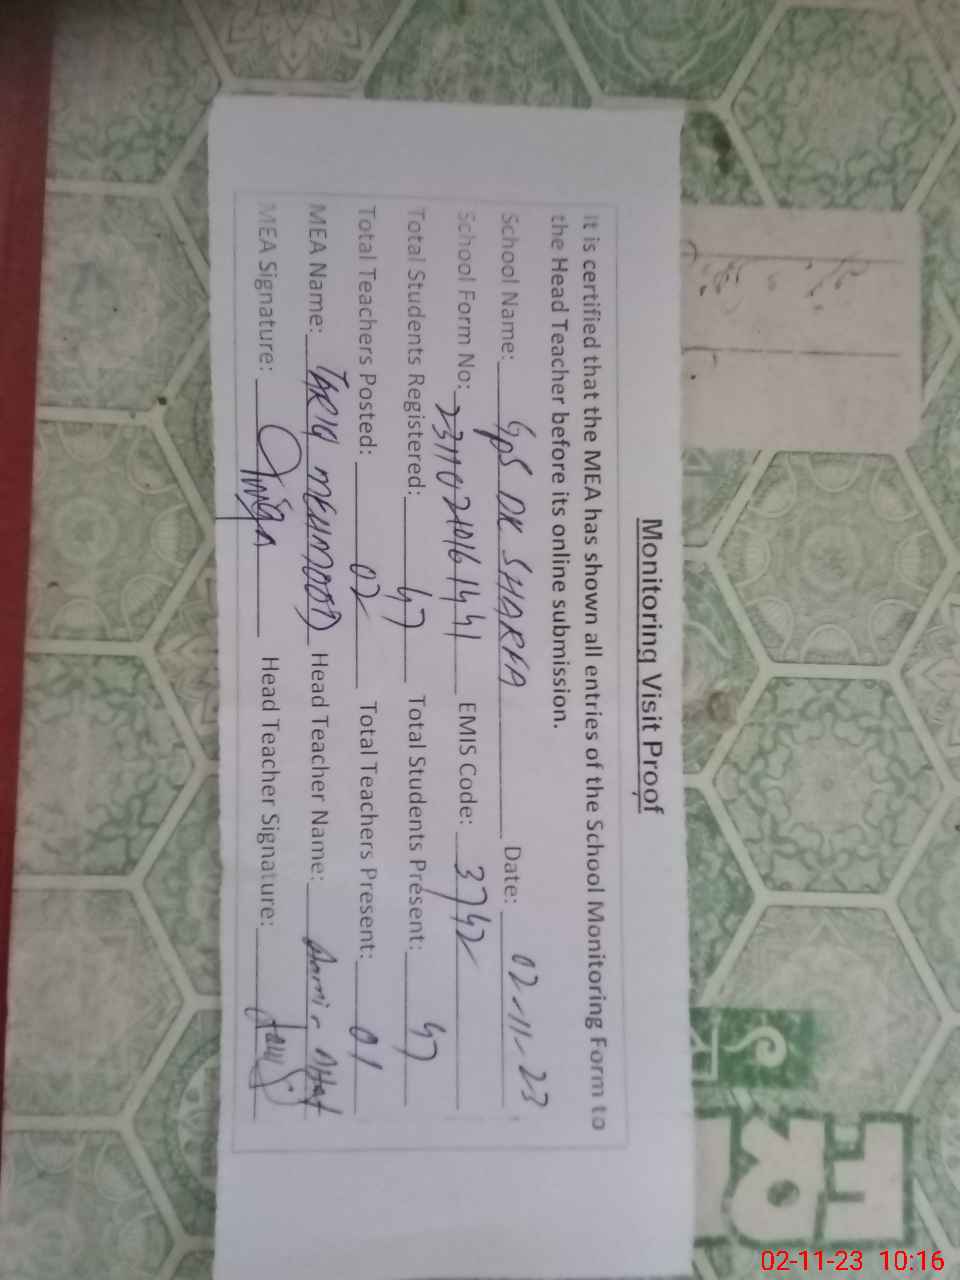 Monitoring Visit Proof
It is certified that the MEA has shown all entries of the School Monitoring Form to
the Head Teacher before its online submission.
School Name: GPS DK SHARFA Date: 02-11-23
School Form No: 23110210161441 EMIS Code: 3742
Total Students Registered: 47 Total Students Present: 47
Total Teachers Posted: 02 Total Teachers Present: 01
MEA Name: TARIQ MEHMOOD Head Teacher Name:
MEA Signature: Head Teacher Signature:
02-11-23 10:16